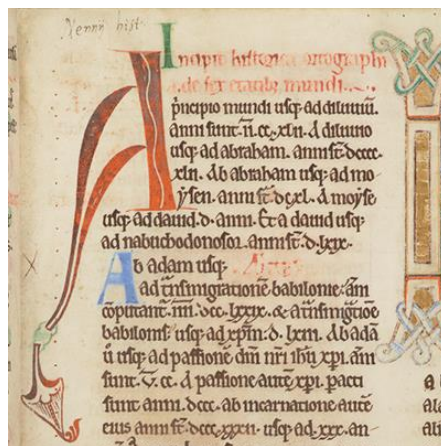 Nennij hist.
Incipit historica ortographi
a. de sex etatibꝫ mundi.
A pͥncipio mundi usqꝫ ad diluuiū.
anni sunt. ii. cc. xlii. A diluuio
usqꝫ ad abraham. anni st̄. dcccc.
xlii. Ab abraham usqꝫ ad mo-
ysen. anni st̄. dcxl. A moyse
usqꝫ ad dauid. d. anni. Et a dauid usqꝫ
ad nabuchodonosor. anni st̄. d. lxix.
Ab adam usqꝫ
ad tͣnsmigrationē babilonie. am̄
cōputant. iiii. dcc. lxxix. & a tͣnsmigͣtiōe
babilonis usqꝫ ad xp̄m. d. lxvi. Ab adā
ů usqꝫ ad passionē dn̄i nr̄i ihū xp̄i. am̄
sunt. v. cc. A passione autē xp̄i pacti
sunt anni. dccc. ab incarnatione autē
eius anni st̄. dccc. xxxii. usqꝫ ad. xxx. an-